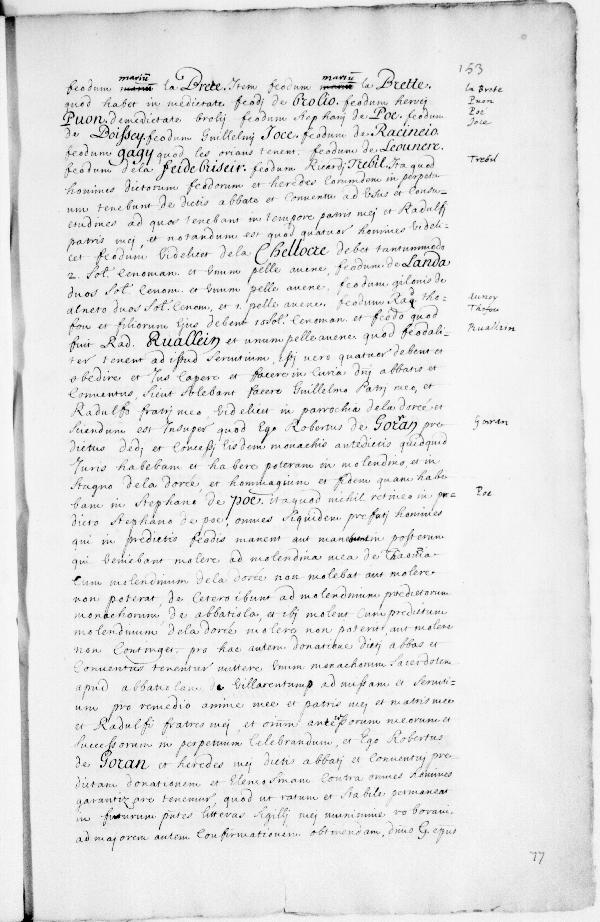 153
feodum mariū la Brete. Item feodum mariū la Brette.
quod habet in medietate feodj de brolio. feodum hervej
Puon. demedietate brolij feodum Stephanj de Poe. feodum
de Poissey. feodum Guillelmj Joce. feodum de Racineio
feodum gagy quod les orians tenent. feodum de Leounere.
feodum dela feidebriseir. feodum Ricardj Trebil. Ita quod
homines dictorum feodorum et heredes eorumdem in perpetu-
um tenebunt de dictis abbate et Conventu ad Usus et Consu-
etudines ad quos tenebant in tempore patris mej et Radulfj
patris mej, et notandum est quod quatuor homines videli-
cet feodum videlicet dela Chellocre debet tantummodo
2. Sol. Cenoman. et Unum pelle avene, feodum de Landa
duos Sol. Cenom. et Unum pelle avene. feodum gilonis de
alneto duos Sol. Cenom. et 1. pelle avene. feodum Rad. tho-
fou et filiorum Ejus debent 15 Sol. Cenoman. et feodo quod
fuit Rad. Ruallein et unum pelle avene quod feodali-
ter tenent ad ipsud Servitium, ipsj vero quatuor debent et
obedire et Jus Capere et facere in Curia dnj abbatis et
Conventus, Sicut Solebant facere Guillelmo Patrj meo, et
Radulfo fratrj meo, videlicet in parrochia dela dorée et
Sciendum est Insuper quod Ego Robertus de Goran pre
dictus dedj et Concessj Eisdem monachis antedictis quidquid
Juris habebam et habere poteram in molendino, et in
Stagno dela dorée et hommagium et fidem quam habe
bam in Stephano de poe. itaquod nichil retineo in pre-
dicto Stephano de poe, omnes Siquidem prefatj homines
qui in predictis feodis manent aut manebunt in posterum
qui veniebant molere ad molendina mea de
Cum molendinum dela dorée non molebat aut molere
non poterat, de Cetero ibunt ad molendinum predictorum
monachorum de abbatiola, et ibj molent Cum predictum
molendinum dela dorée molere non poterit, aut molere
non Continget. pro hac autem donatione dictj abbas et
Conventus tenentur mittere Unum monachorum Sacerdotem
apud abbatiolam de Villarentump ad missam et Servti-
um pro remedio anime mee et patris mej et matris mee
et Radulfi fratres mej, et omium antecessorum meorum et
Successorum in perpetuum Celebrandum, et Ego Robertus
de Goran et heredes mej dictis abbatj et Conventuj pre-
dictam donationem et Elemosinam Contra omnes homines
garantizare tenemur, quod ut ratum et Stabile permaneat
in futurum putes litteras Sigillj mej munimine roboravi,
ad majorem autem Confirmationem obtinendam, dnus G. ejus
la Brete
Puon
Poe
Joce
Trebil
Auney
Thofou
Rualixin
Gorran
Poe
77